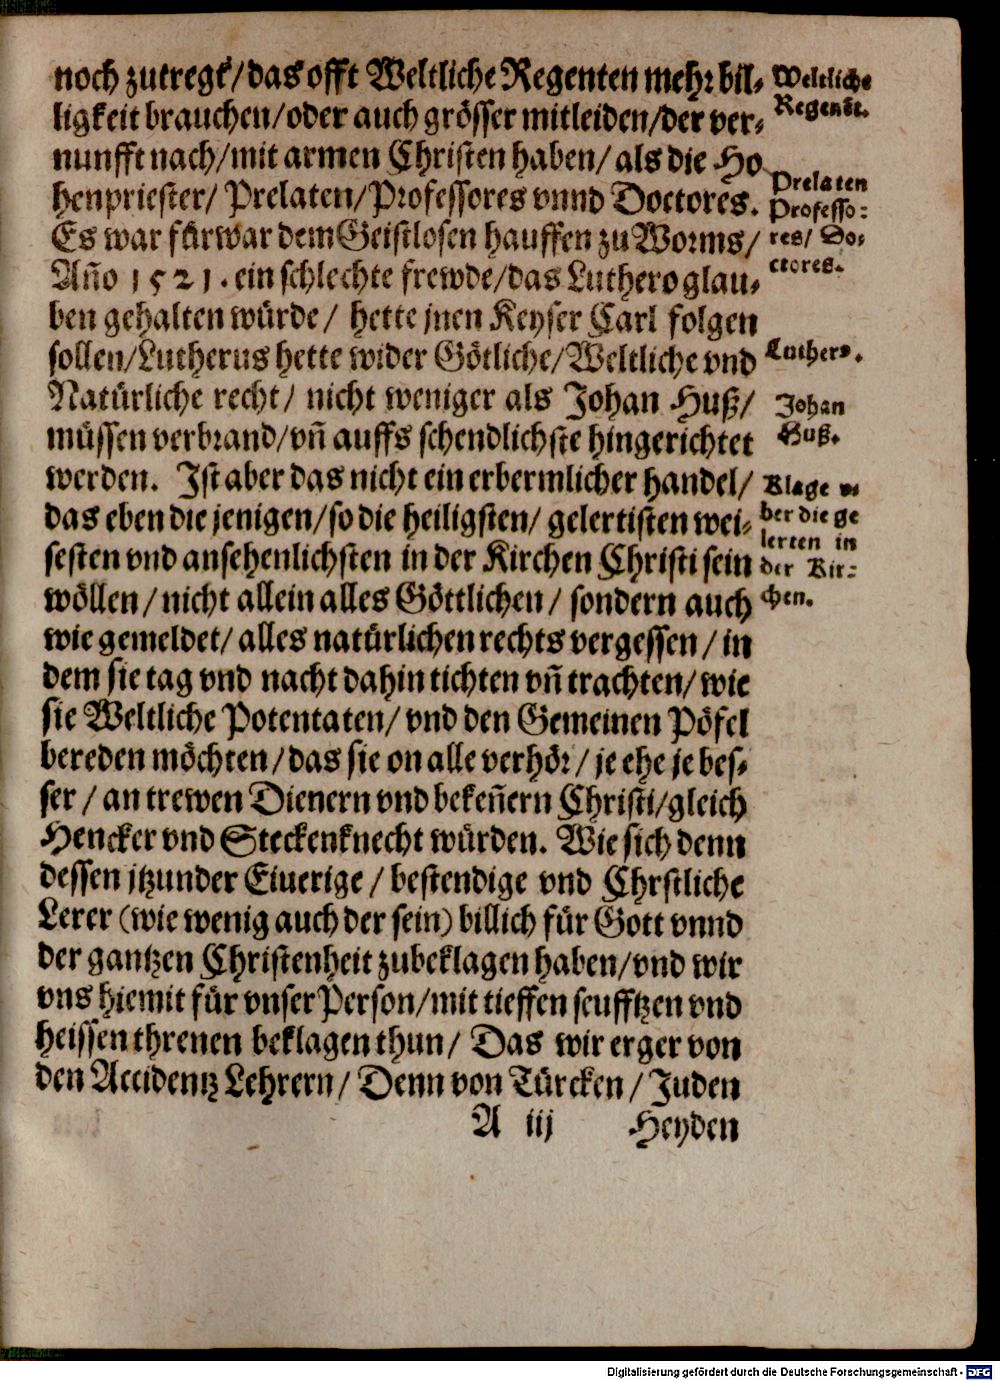 noch zutregt/das offt Weltliche Regenten mehr bil-
ligkeit brauchen/oder auch grösser mitleiden/der ver-
nunfft nach/mit armen Christen haben/ als die Ho
henpriester/ Prelaten/Professores vnnd Doctores.
Es war fürwar dem Geistlosen hauffen zu Worms/
Año 1521. ein schlechte frewde/das Luthero glau-
ben gehalten würde/ hette jnen Keyser Carl folgen
sollen/Lutherus hette wider Götliche/Weltliche vnd
Natürliche recht/ nicht weniger als Johan Huß/
müssen verbrand/vñ auffs schendlichste hingerichtet
werden. Ist aber das nicht ein erbermlicher handel/
das eben die jenigen/so die heiligsten/ gelertisten wei-
sesten vnd ansehenlichsten in der Kirchen Christi sein
wöllen/nicht allein alles Göttlichen/ sondern auch
wie gemeldet/ alles natürlichen rechts vergessen/ in
dem sie tag vnd nacht dahin tichten vñ trachten/ wie
sie Weltliche Potentaten/ vnd den Gemeinen Pöfel
bereden möchten/das sie on alle verhör/ je ehe je bes-
ser/ an trewen Dienern vnd bekeñern Christi/gleich
Hencker vnd Steckenknecht würden. Wie sich denn
dessen jtzunder Eiuerige/ bestendige vnd Chrstliche
Lerer (wie wenig auch der sein) billich für Gott vnnd
der gantzen Christenheit zubeklagen haben/vnd wir
vns hiemit für vnser Person/mit tieffen seufftzen vnd
heissen threnen beklagen thun/ Das wir erger von
den Accidentz Lehrern/ Denn von Türcken/ Juden
A iij Heyden
Weltliche
Regenät.
Prelaten
Professo-
res/ Do-
ctores.
Luthers.
Johan
Huß.
Klage v-
ber die ge
lerten in
der Kir-
chen.
Digitalisierung gefördert durch die Deutsche Forschungsgemeinschaft - DFG